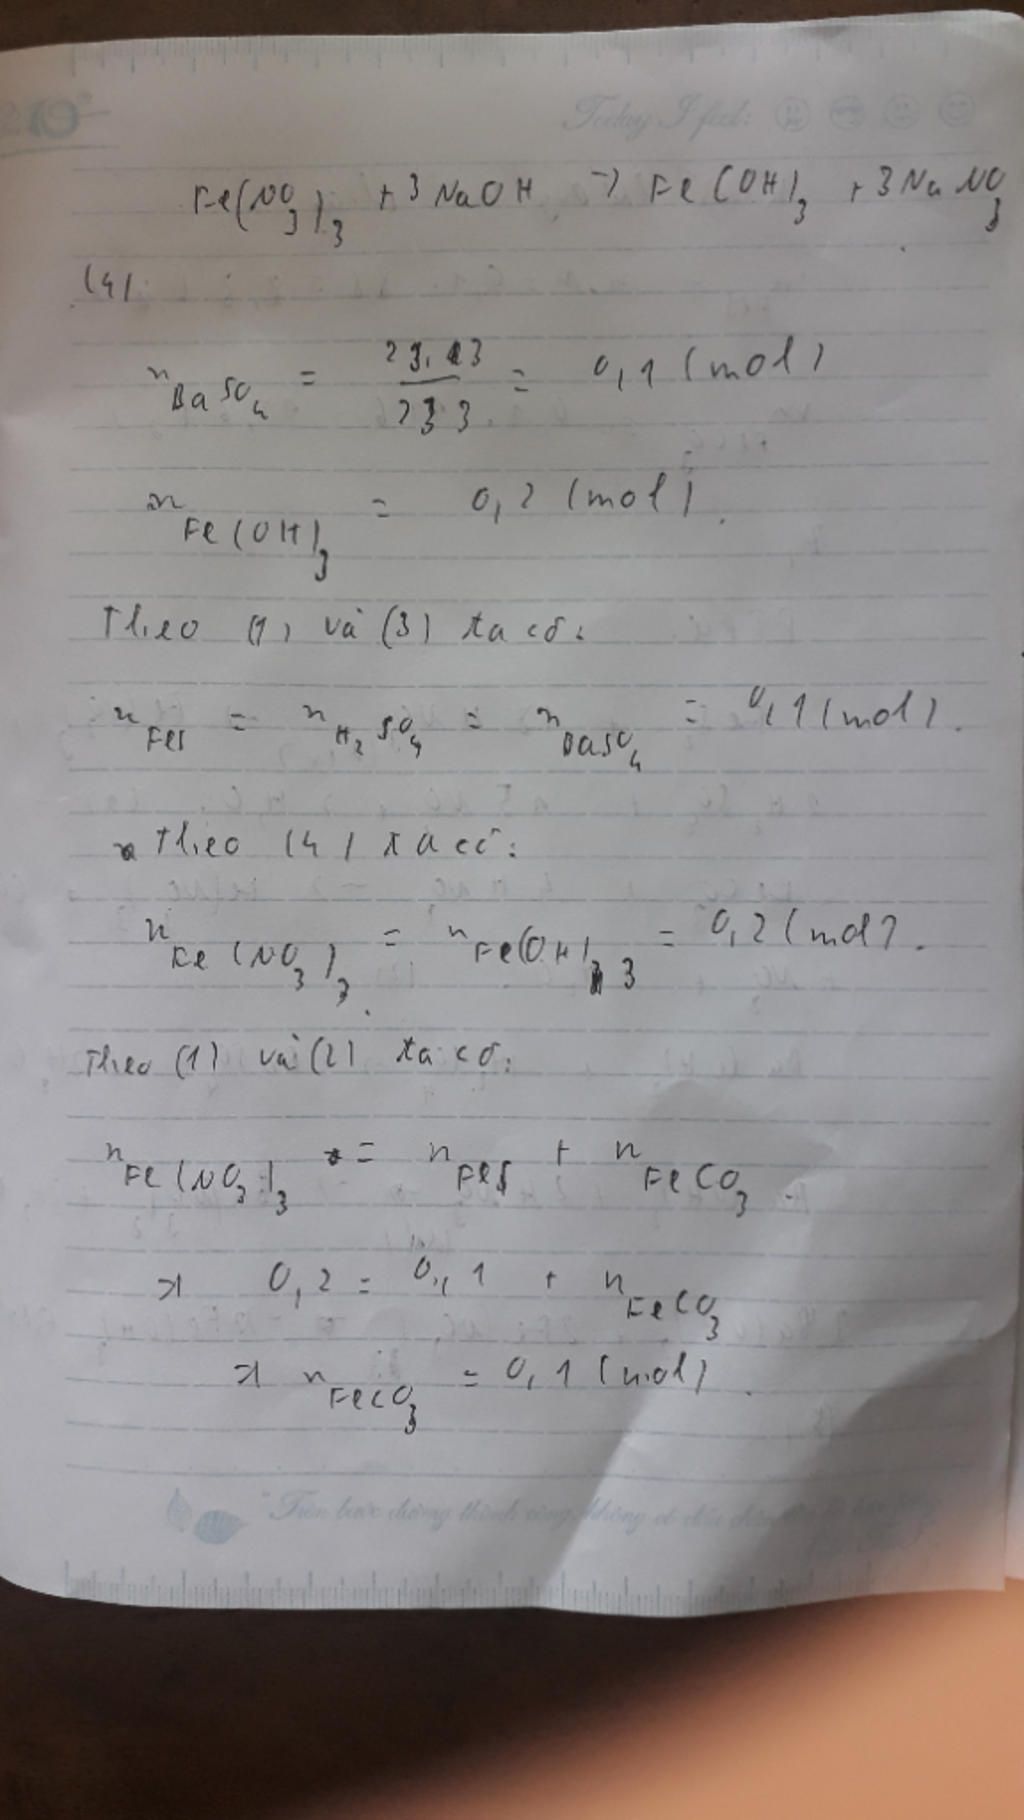 Today I feel:
Fe(NO3)3 + 3NaOH → Fe(OH)3 + 3NaNO3
(4)
nBaSO4 = 23.13/233 = 0,1 (mol)
nFe(OH)3 = 0,2 (mol).
Theo (1) và (3) ta có:
nFeS = nH2SO4 = nBaSO4 = 0,1 (mol).
Theo (4) ta có:
nFe(NO3)3 = nFe(OH)3 = 0,2 (mol).
Theo (1) và (2) ta có:
nFe(NO3)3 = nFeS + nFeCO3
=> 0,2 = 0,1 + nFeCO3
=> nFeCO3 = 0,1 (mol).
"Trên bước đường thành công, không có dấu chân